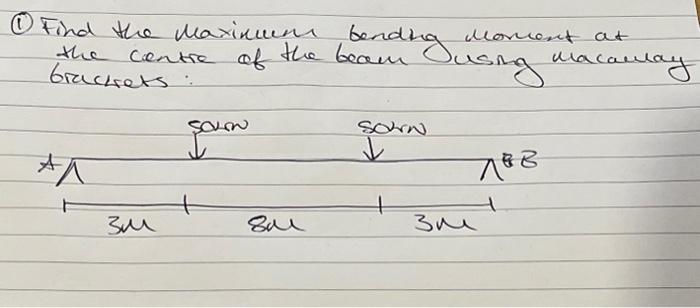 ① Find the maximum bending moment at
the centre of the beam using macaulay
brackets :
50kN 50kN
A B
3m 8m 3m